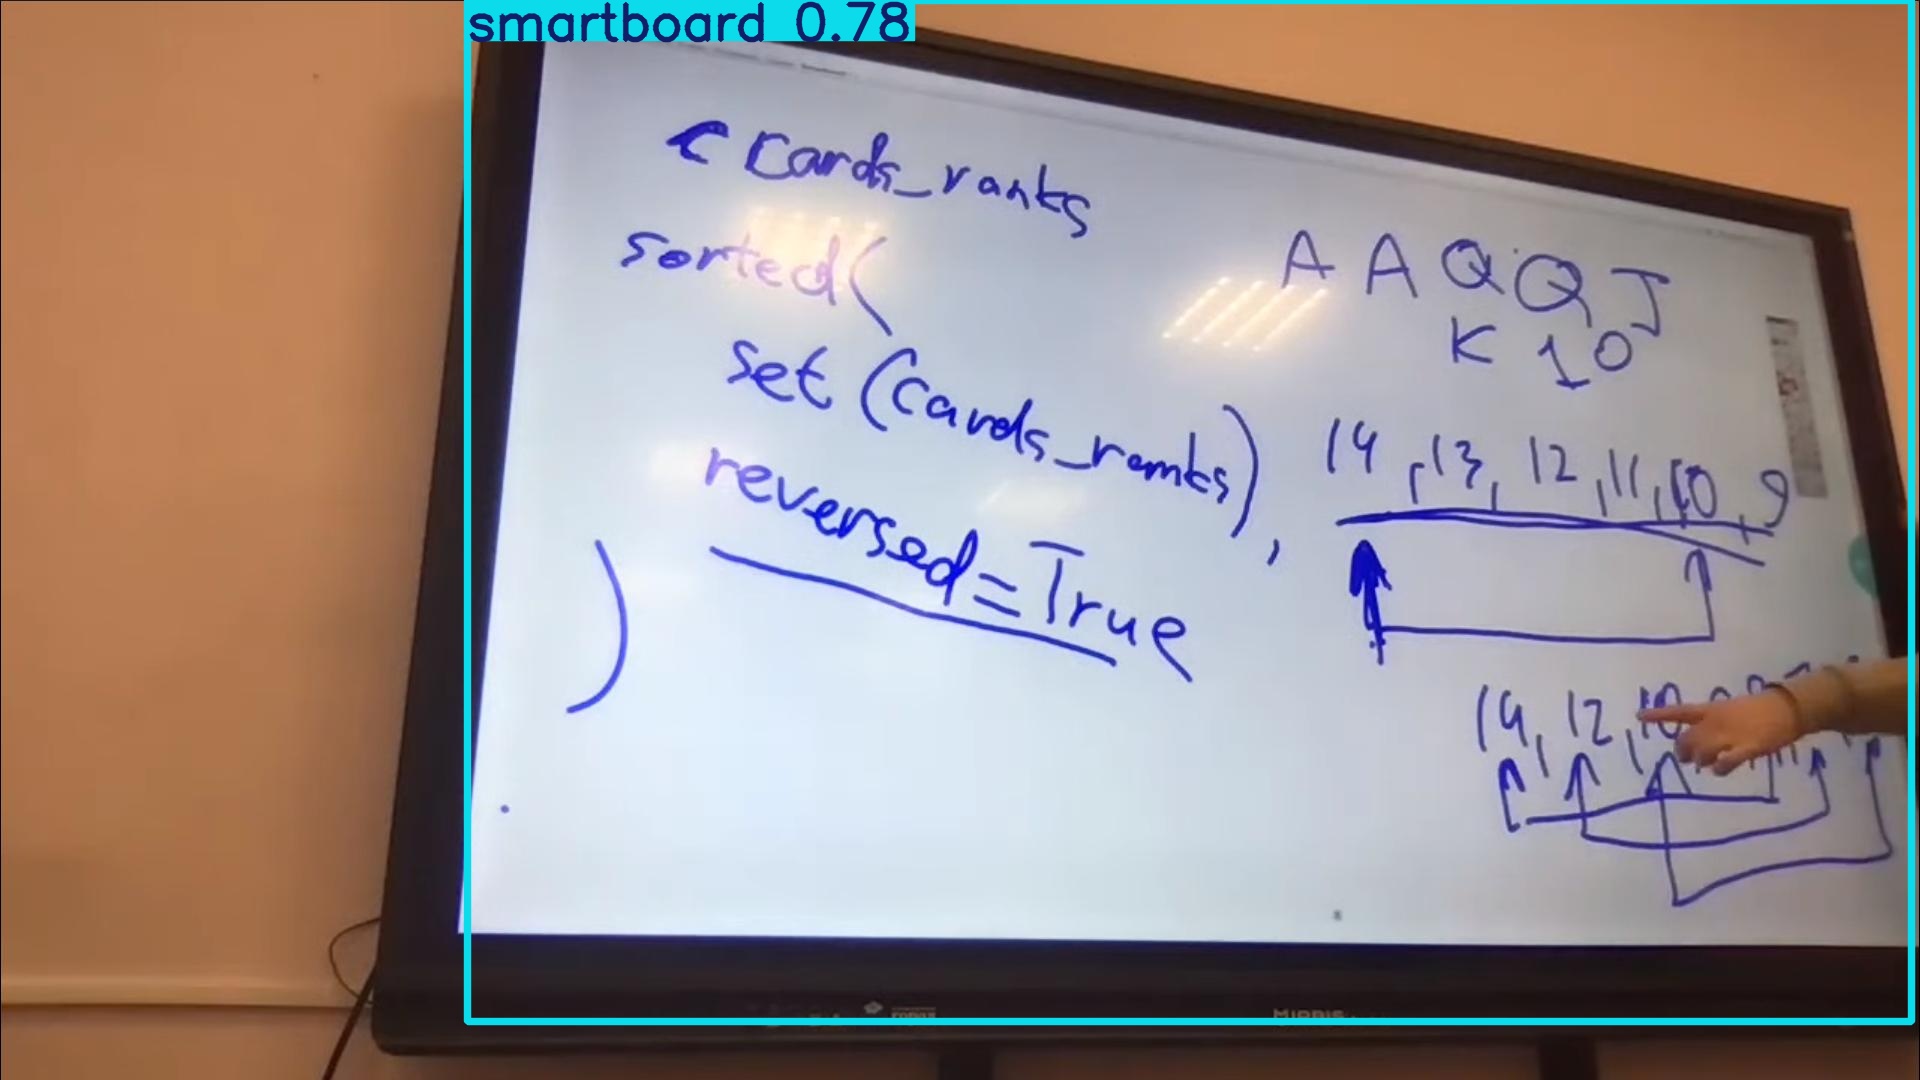 smartboard 0.78
cards_ranks
sorted(
set (cards_ranks),
reversed=True
)
A A Q Q J
K 10
14, 13, 12, 11, 10, 9
14, 12, 10